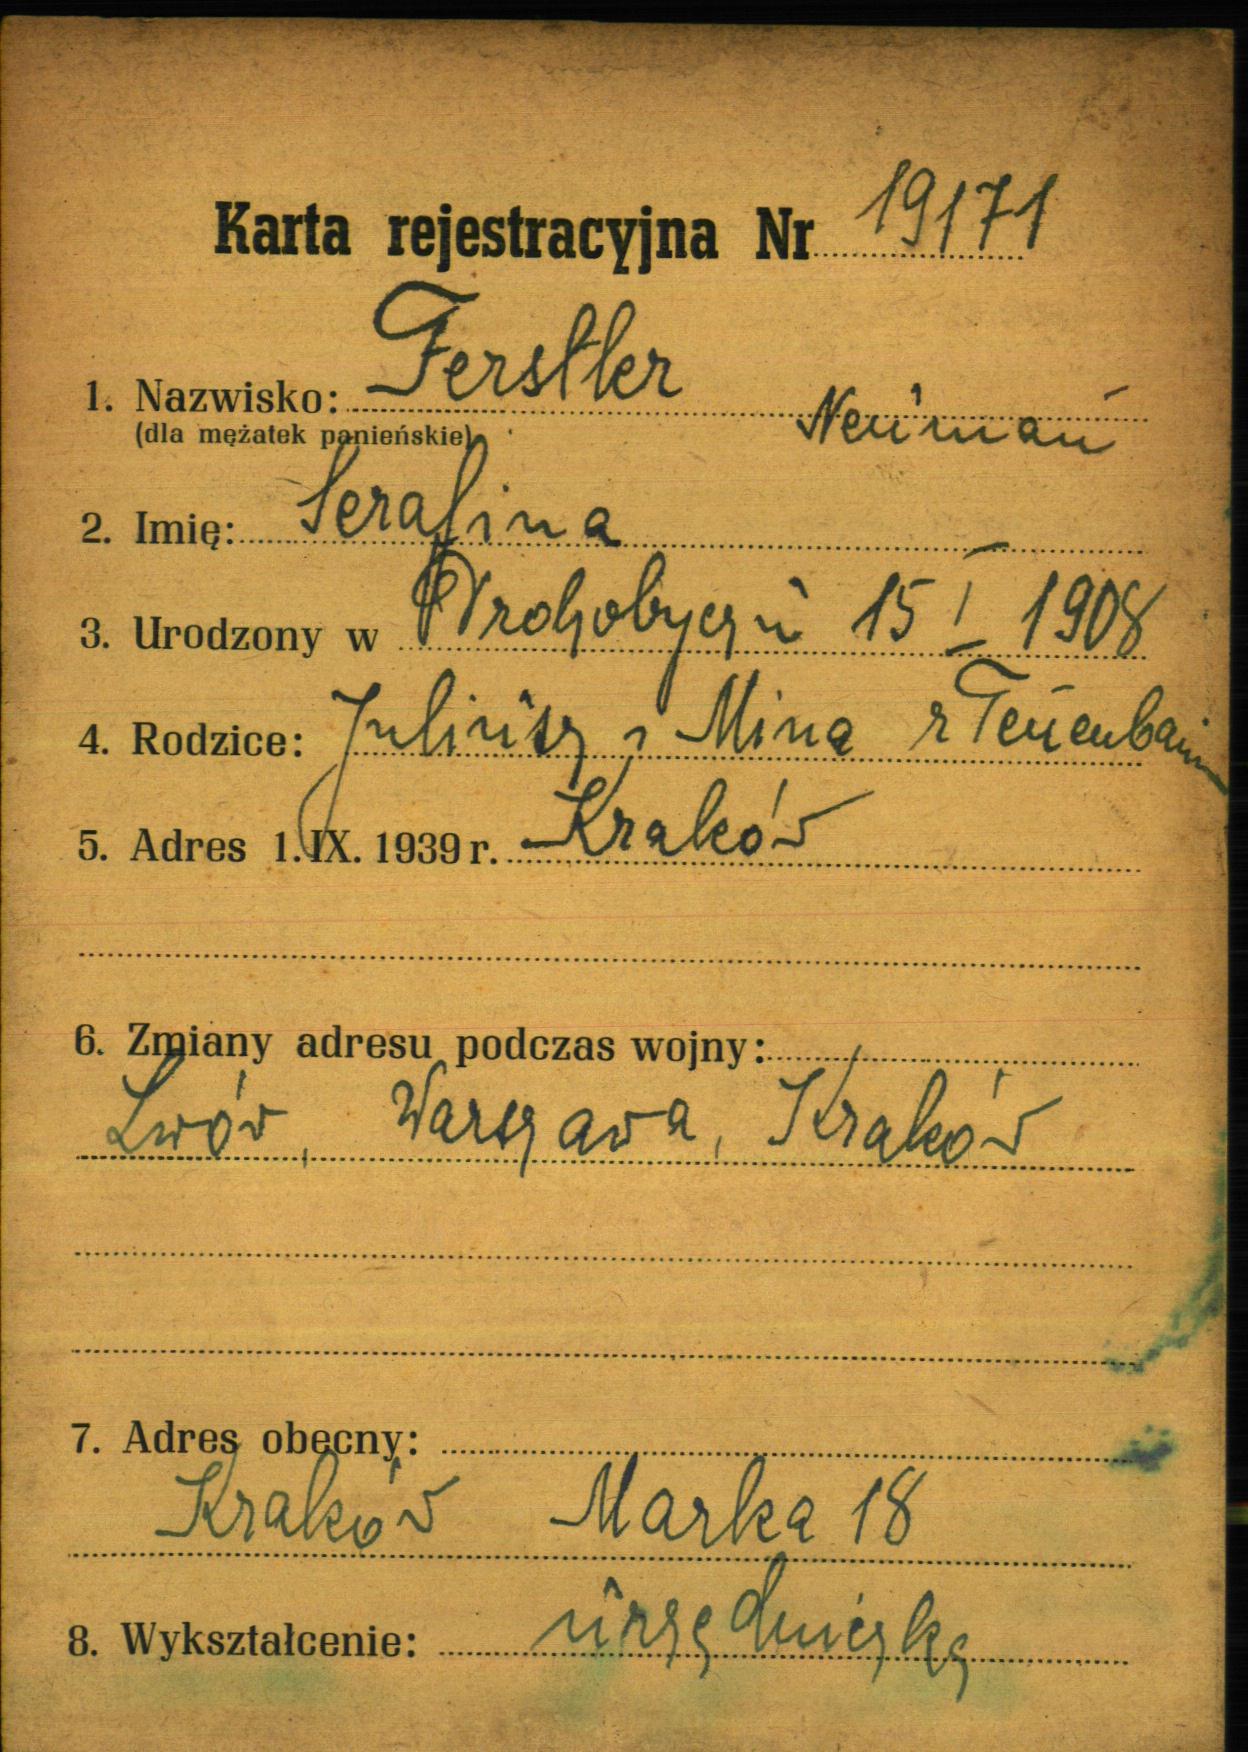 Karta rejestracyjna Nr 19171
1. Nazwisko: Ferstler
(dla mężatek panieńskie) Neuman
2. Imię: Serafina
3. Urodzony w Drohobyczu 15 I 1908
4. Rodzice: Juliusz i Mina z Tenenbaum
5. Adres 1.IX. 1939 r. Kraków
6. Zmiany adresu podczas wojny:
Lwów, Warszawa, Kraków
7. Adres obecny:
Kraków Marka 18
8. Wykształcenie: urzędniczka